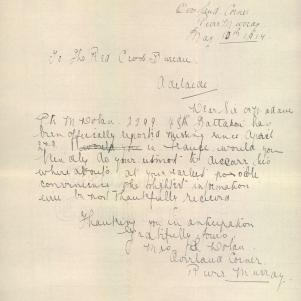 Overland Corner
River Murray
May 10th 1917
To The Red Cross Bureau
Adelaide
Dear Sir or Madam
Pte M Dolan 2299 48th Battalion has
been officially reported missing since April
in France would you
kindly do your utmost to discover his
where abouts at your earliest possible
convenience the slightest information
will be most thankfully received
Thanking you in anticipation
Gratefully yours
Mrs Dolan
Overland Corner
River Murray